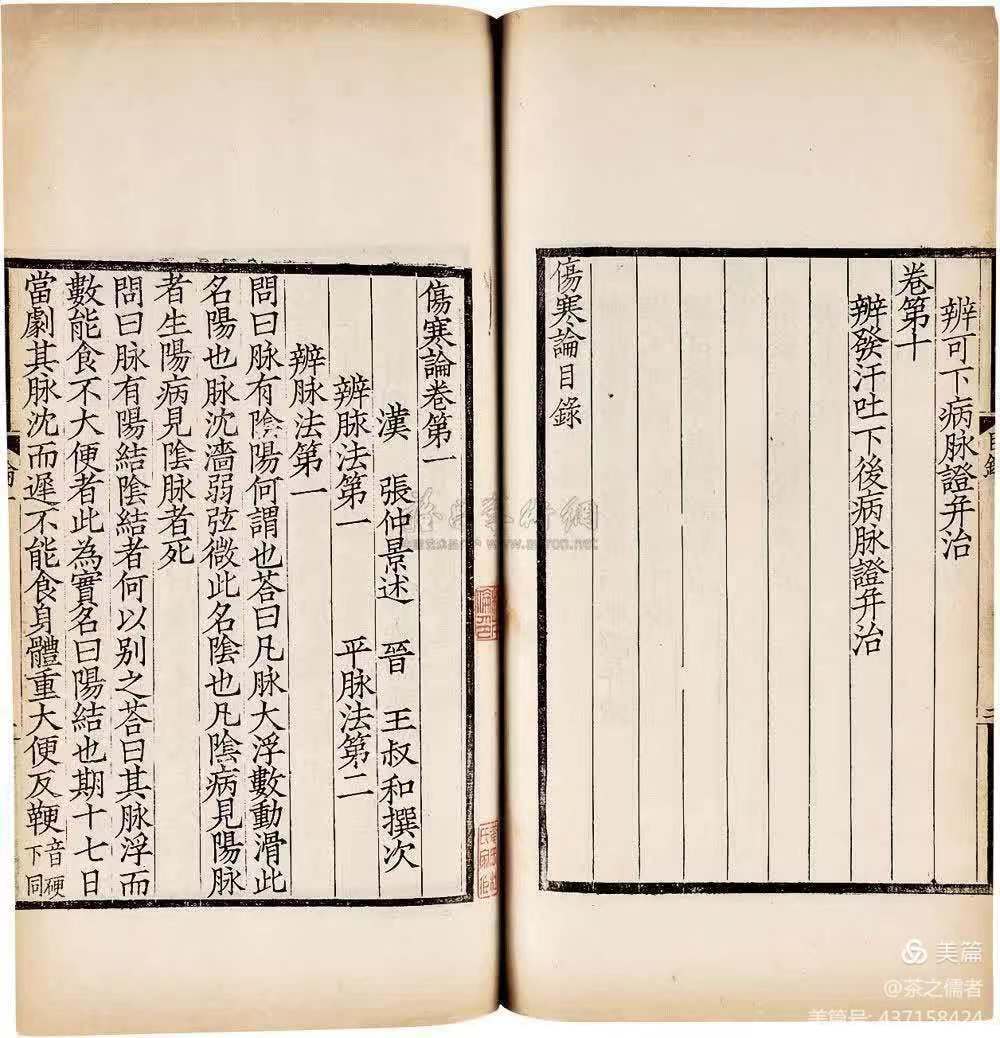 辨可下病脉證并治
卷第十
辨發汗吐下後病脉證并治
傷寒論目錄
傷寒論卷第一
漢 張仲景述 晉 王叔和撰次
辨脉法第一 平脉法第二
辨脉法第一
問曰脉有陰陽何謂也荅曰凡脉大浮數動滑此
名陽也脉沈濇弱弦微此名陰也凡陰病見陽脉
者生陽病見陰脉者死
問曰脉有陽結陰結者何以别之荅曰其脉浮而
數能食不大便者此為實名曰陽結也期十七日
當劇其脉沈而遲不能食身體重大便反鞕音硬下同
美篇
@茶之儒者
美篇号: 437158424